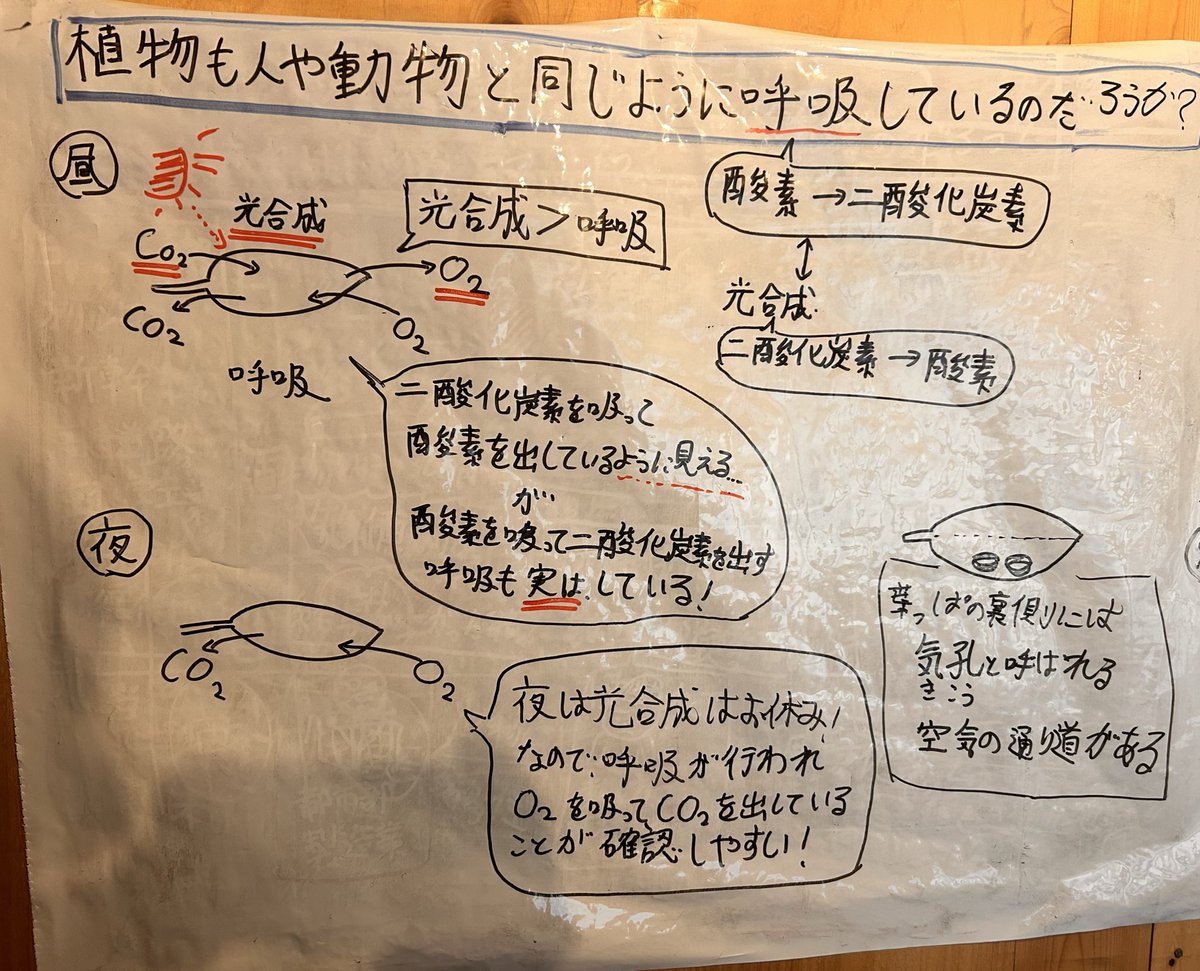 植物も人や動物と同じように呼吸しているのだろうか?
昼
光合成
CO2
CO2
光合成>呼吸
O2
O2
呼吸
酸素→二酸化炭素
光合成
二酸化炭素→酸素
二酸化炭素を吸って
酸素を出しているように見える...
が
酸素を吸って二酸化炭素を出す
呼吸も実は.している!
夜
CO2
O2
夜は光合成はお休み!
なので、呼吸が行われ
O2を吸ってCO2を出している
ことが確認しやすい!
葉っぱの裏側りには
気孔と呼ばれる
きこう
空気の通り道がある